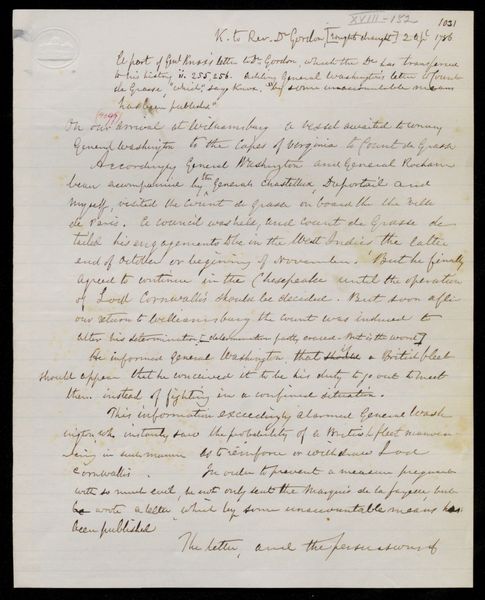 XVIII-182
1031
K. to Rev. Dr Gordon [rough draught] 2 Apl 1786
A part of Genl Knox's letter to Dr. Gordon, which the Dr has transferred
to his history v. 255, 256. Adding General Washington's letter to Count
de Grasse, "which," says Knox, "by some unaccountable means
has been published"
On our arrival at Williamsburg a vessel awaited to convey
General Washington to the Capes of Virginia to Count de Grasse
Accordingly General Washington and General Rocham
beau accompanied by the Generals Chastellux, Duportail and
myself, visited the Count de Grasse on board the Ville
de Paris. A council was held, and Count de Grasse de
tailed his engagements to be in the West Indies the latter
end of October or beginning of November. But he finally
agreed to continue in the Chesapeake until the operation
of Lord Cornwallis should be decided. But soon after
our return to Williamsburg the Count was induced to
alter his determination [determination partly erased. But is the word]
He informed General Washington, that if a British fleet
should appear that he conceived it to be his duty to go out & meet
them instead of fighting in a confined situation.
This information exceedingly alarmed General Wash
ington, who instantly saw the probability of a British fleet manoeu
vring in such manner as to reinforce or withdraw Lord
Cornwallis. In order to prevent a measure pregnant
with so much evil, he not only sent the Marquis de la Fayette, but
he wrote a letter which by some unaccountable means has
been published
The letter, and the persuasions of